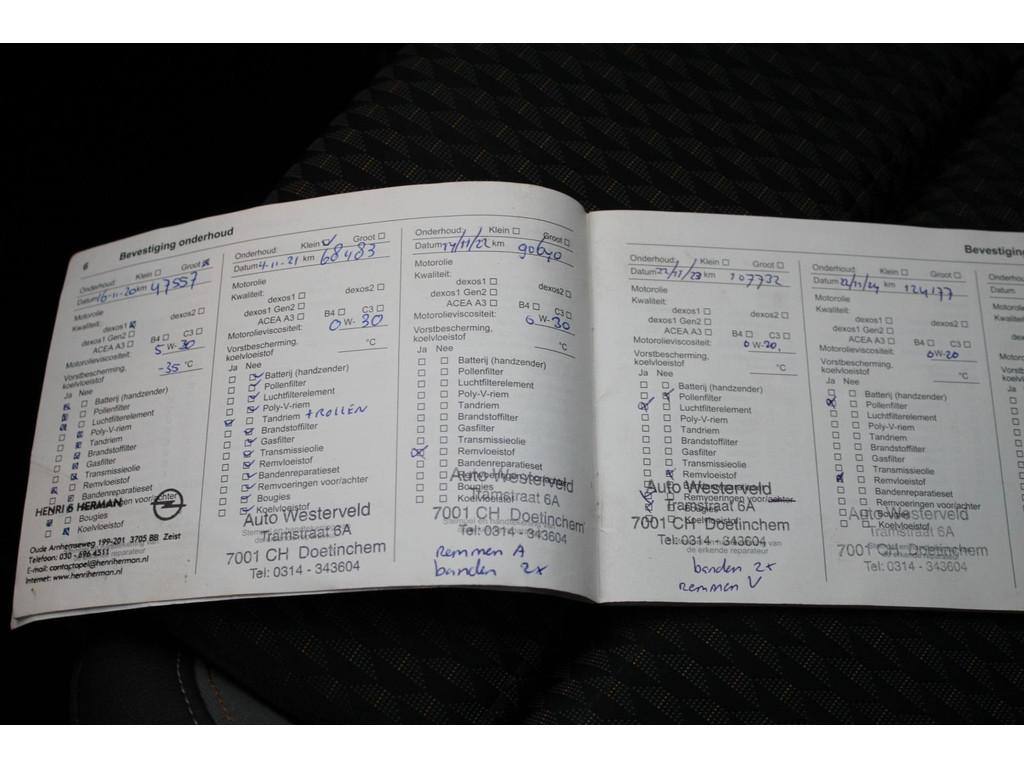 6
Bevestiging onderhoud
Klein Groot
Datum 16-11-20 km 47557
Motorolie
Kwaliteit:
dexos1
dexos1 Gen2
ACEA A3 B4 C3
Motorolieviscositeit:
5 W- 30
Vorstbescherming,
koelvloeistof -35 °C
Ja Nee
Batterij (handzender)
Pollenfilter
Luchtfilterelement
Poly-V-riem
Tandriem
Brandstoffilter
Gasfilter
Transmissieolie
Remvloeistof
Bandenreparatieset
Remvoeringen voor/achter
Bougies
Koelvloeistof
HENRI & HERMAN
Oude Arnhemseweg 199-201 3705 BB Zeist
Telefoon: 030 - 696 4511
E-mail: contactopel@henriherman.nl
Internet: www.henriherman.nl
Onderhoud: Klein Groot
Datum 4-11-21 km 68483
Motorolie
Kwaliteit:
dexos1 dexos2
dexos1 Gen2
ACEA A3 B4 C3
Motorolieviscositeit:
0 W- 30
Vorstbescherming,
koelvloeistof °C
Ja Nee
Batterij (handzender)
Pollenfilter
Luchtfilterelement
Poly-V-riem
Tandriem + ROLLEN
Brandstoffilter
Gasfilter
Transmissieolie
Remvloeistof
Bandenreparatieset
Remvoeringen voor/achter
Bougies
Koelvloeistof
Auto Westerveld
Tramstraat 6A
7001 CH Doetinchem
Tel: 0314 - 343604
Onderhoud: Klein Groot
Datum 14/11/22 km 90640
Motorolie
Kwaliteit:
dexos1
dexos1 Gen2 dexos2
ACEA A3 B4 C3
Motorolieviscositeit:
0 W- 30
Vorstbescherming,
koelvloeistof °C
Ja Nee
Batterij (handzender)
Pollenfilter
Luchtfilterelement
Poly-V-riem
Tandriem
Brandstoffilter
Gasfilter
Transmissieolie
Remvloeistof
Bandenreparatieset
Bougies
Koelvloeistof
Auto Westerveld
Tramstraat 6A
7001 CH Doetinchem
Tel: 0314 - 343604
Remmen A
banden 2x
Bevestiging
Onderhoud: Klein Groot
Datum 22/11/23 km 107732
Motorolie
Kwaliteit:
dexos1 dexos2
dexos1 Gen2
ACEA A3 B4 C3
Motorolieviscositeit:
0 W- 20
Vorstbescherming,
koelvloeistof °C
Ja Nee
Batterij (handzender)
Pollenfilter
Luchtfilterelement
Poly-V-riem
Tandriem
Brandstoffilter
Gasfilter
Transmissieolie
Remvloeistof
Bandenreparatieset
Remvoeringen voor/achter
Bougies
Koelvloeistof
Auto Westerveld
Tramstraat 6A
7001 CH Doetinchem
Tel: 0314 - 343604
de erkende reparateur
banden 2x
remmen V
Onderhoud: Klein Groot
Datum 22/11/24 km 124177
Motorolie
Kwaliteit:
dexos1 dexos2
dexos1 Gen2
ACEA A3 B4 C3
Motorolieviscositeit:
0 W- 20
Vorstbescherming,
koelvloeistof °C
Ja Nee
Batterij (handzender)
Pollenfilter
Luchtfilterelement
Poly-V-riem
Tandriem
Brandstoffilter
Gasfilter
Transmissieolie
Remvloeistof
Bandenreparatieset
Remvoeringen voor/achter
Bougies
Koelvloeistof
Auto Westerveld
Tramstraat 6A
7001 CH Doetinchem
Tel: 0314 - 343604